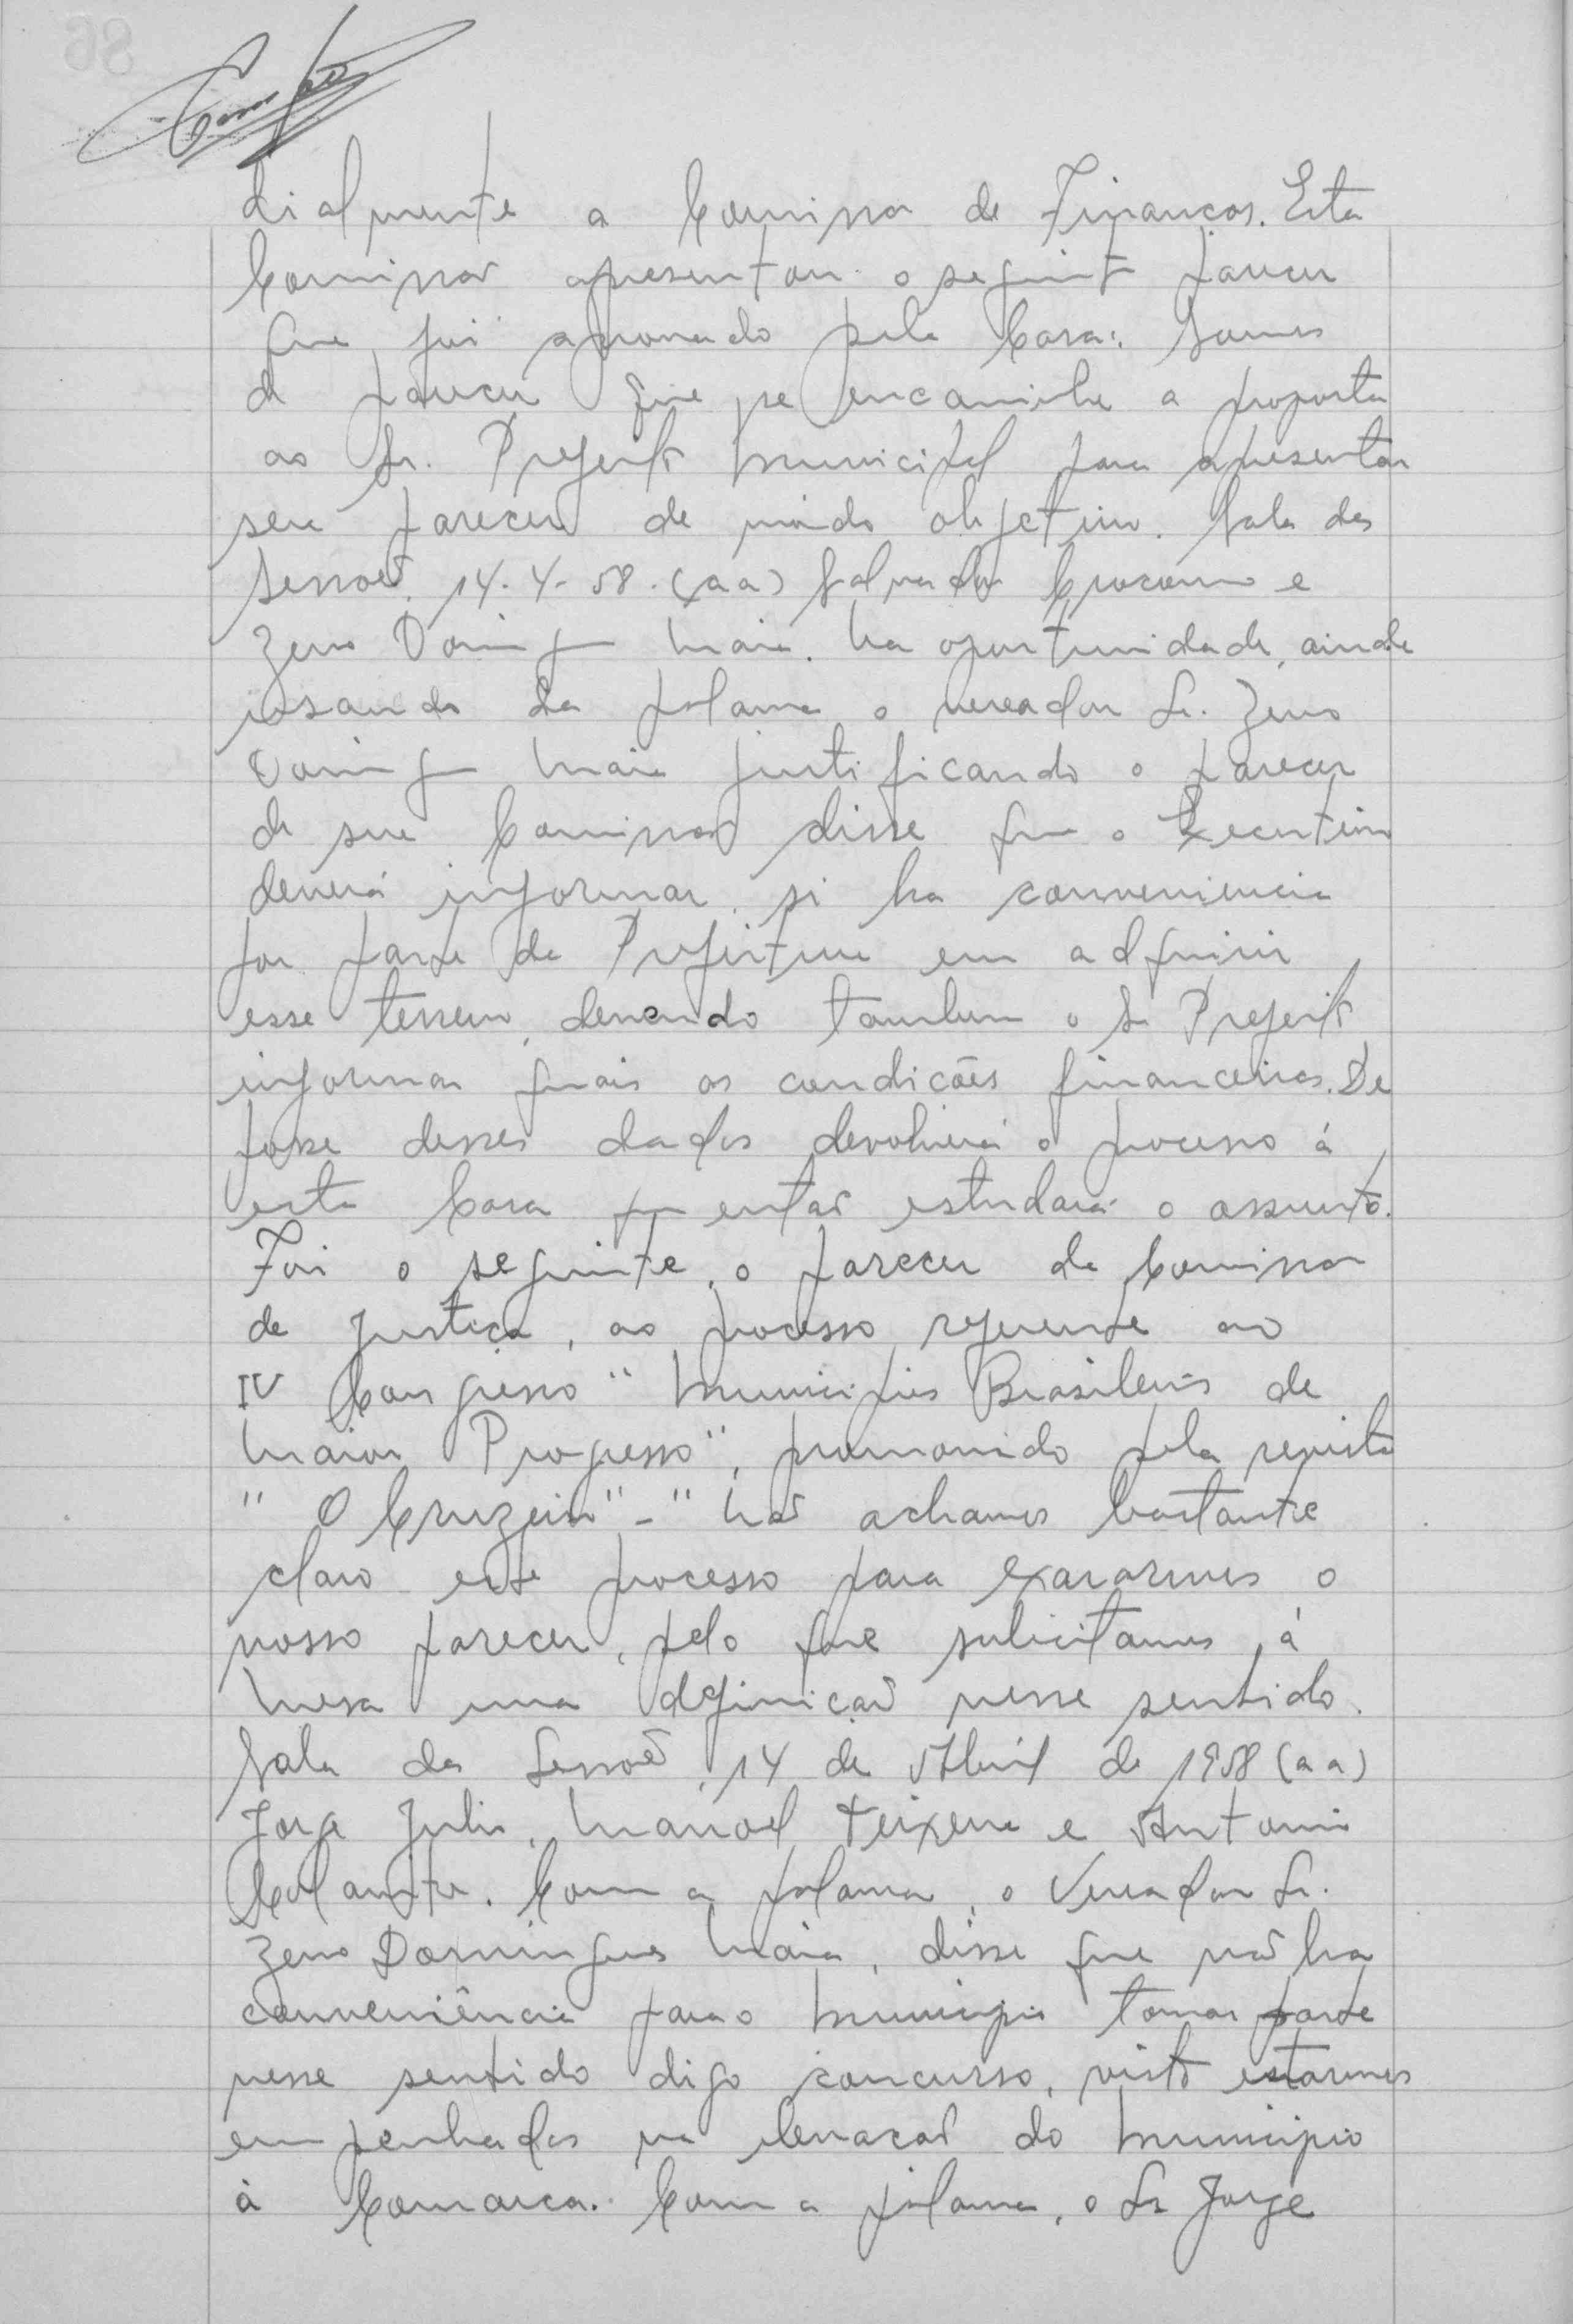 dialmente a Comissão de Finanças. Esta
Comissão apresentou o seguinte parecer
que foi aprovado pela Casa: Somos
d parecer que se encaminhe a proposta
ao Sr. Prefeito Municipal para apresentar
seu parecer de modo objetivo. Sala das
Sessoes. 14-4-58. (aa) Salvador e
Zeno Domingues Maia. Na oportunidade, ainda
usando da palavra o vereador Sr. Zeno
Domingues Maia justificando o parecer
de sua Comissão disse que o Executivo
deverá informar si ha conveniencia
por parte da Prefeitura em adquirir
esse terreno, devendo tambem o Sr Prefeito
informar quais as condições financeiras. De
posse desses dados devolverá o processo á
esta Casa que então estudará o assunto.
Foi o seguinte, o parecer da Comissão
de Justiça, ao processo referente ao
IV Congresso "Municipios Brasileiros de
Maior Progresso", promovido pela revista
"O Cruzeiro" - "Não achamos bastante
claro este processo para exararmos o
nosso parecer, pelo que solicitamos á
Mesa uma definição nesse sentido.
Sala das Sessoẽs, 14 de Abril de 1958 (aa)
Jorge Julio, Manoel Teixeira e Antonio
Com a palavra, o Vereador Sr.
Zeno Domingues Maia, disse que não ha
conveniência para o Municipio tomar parte
nesse sentido digo concurso, visto estarmos
empenhados na elevação do Municipio
á Comarca. Com a palavra, o Sr Jorge